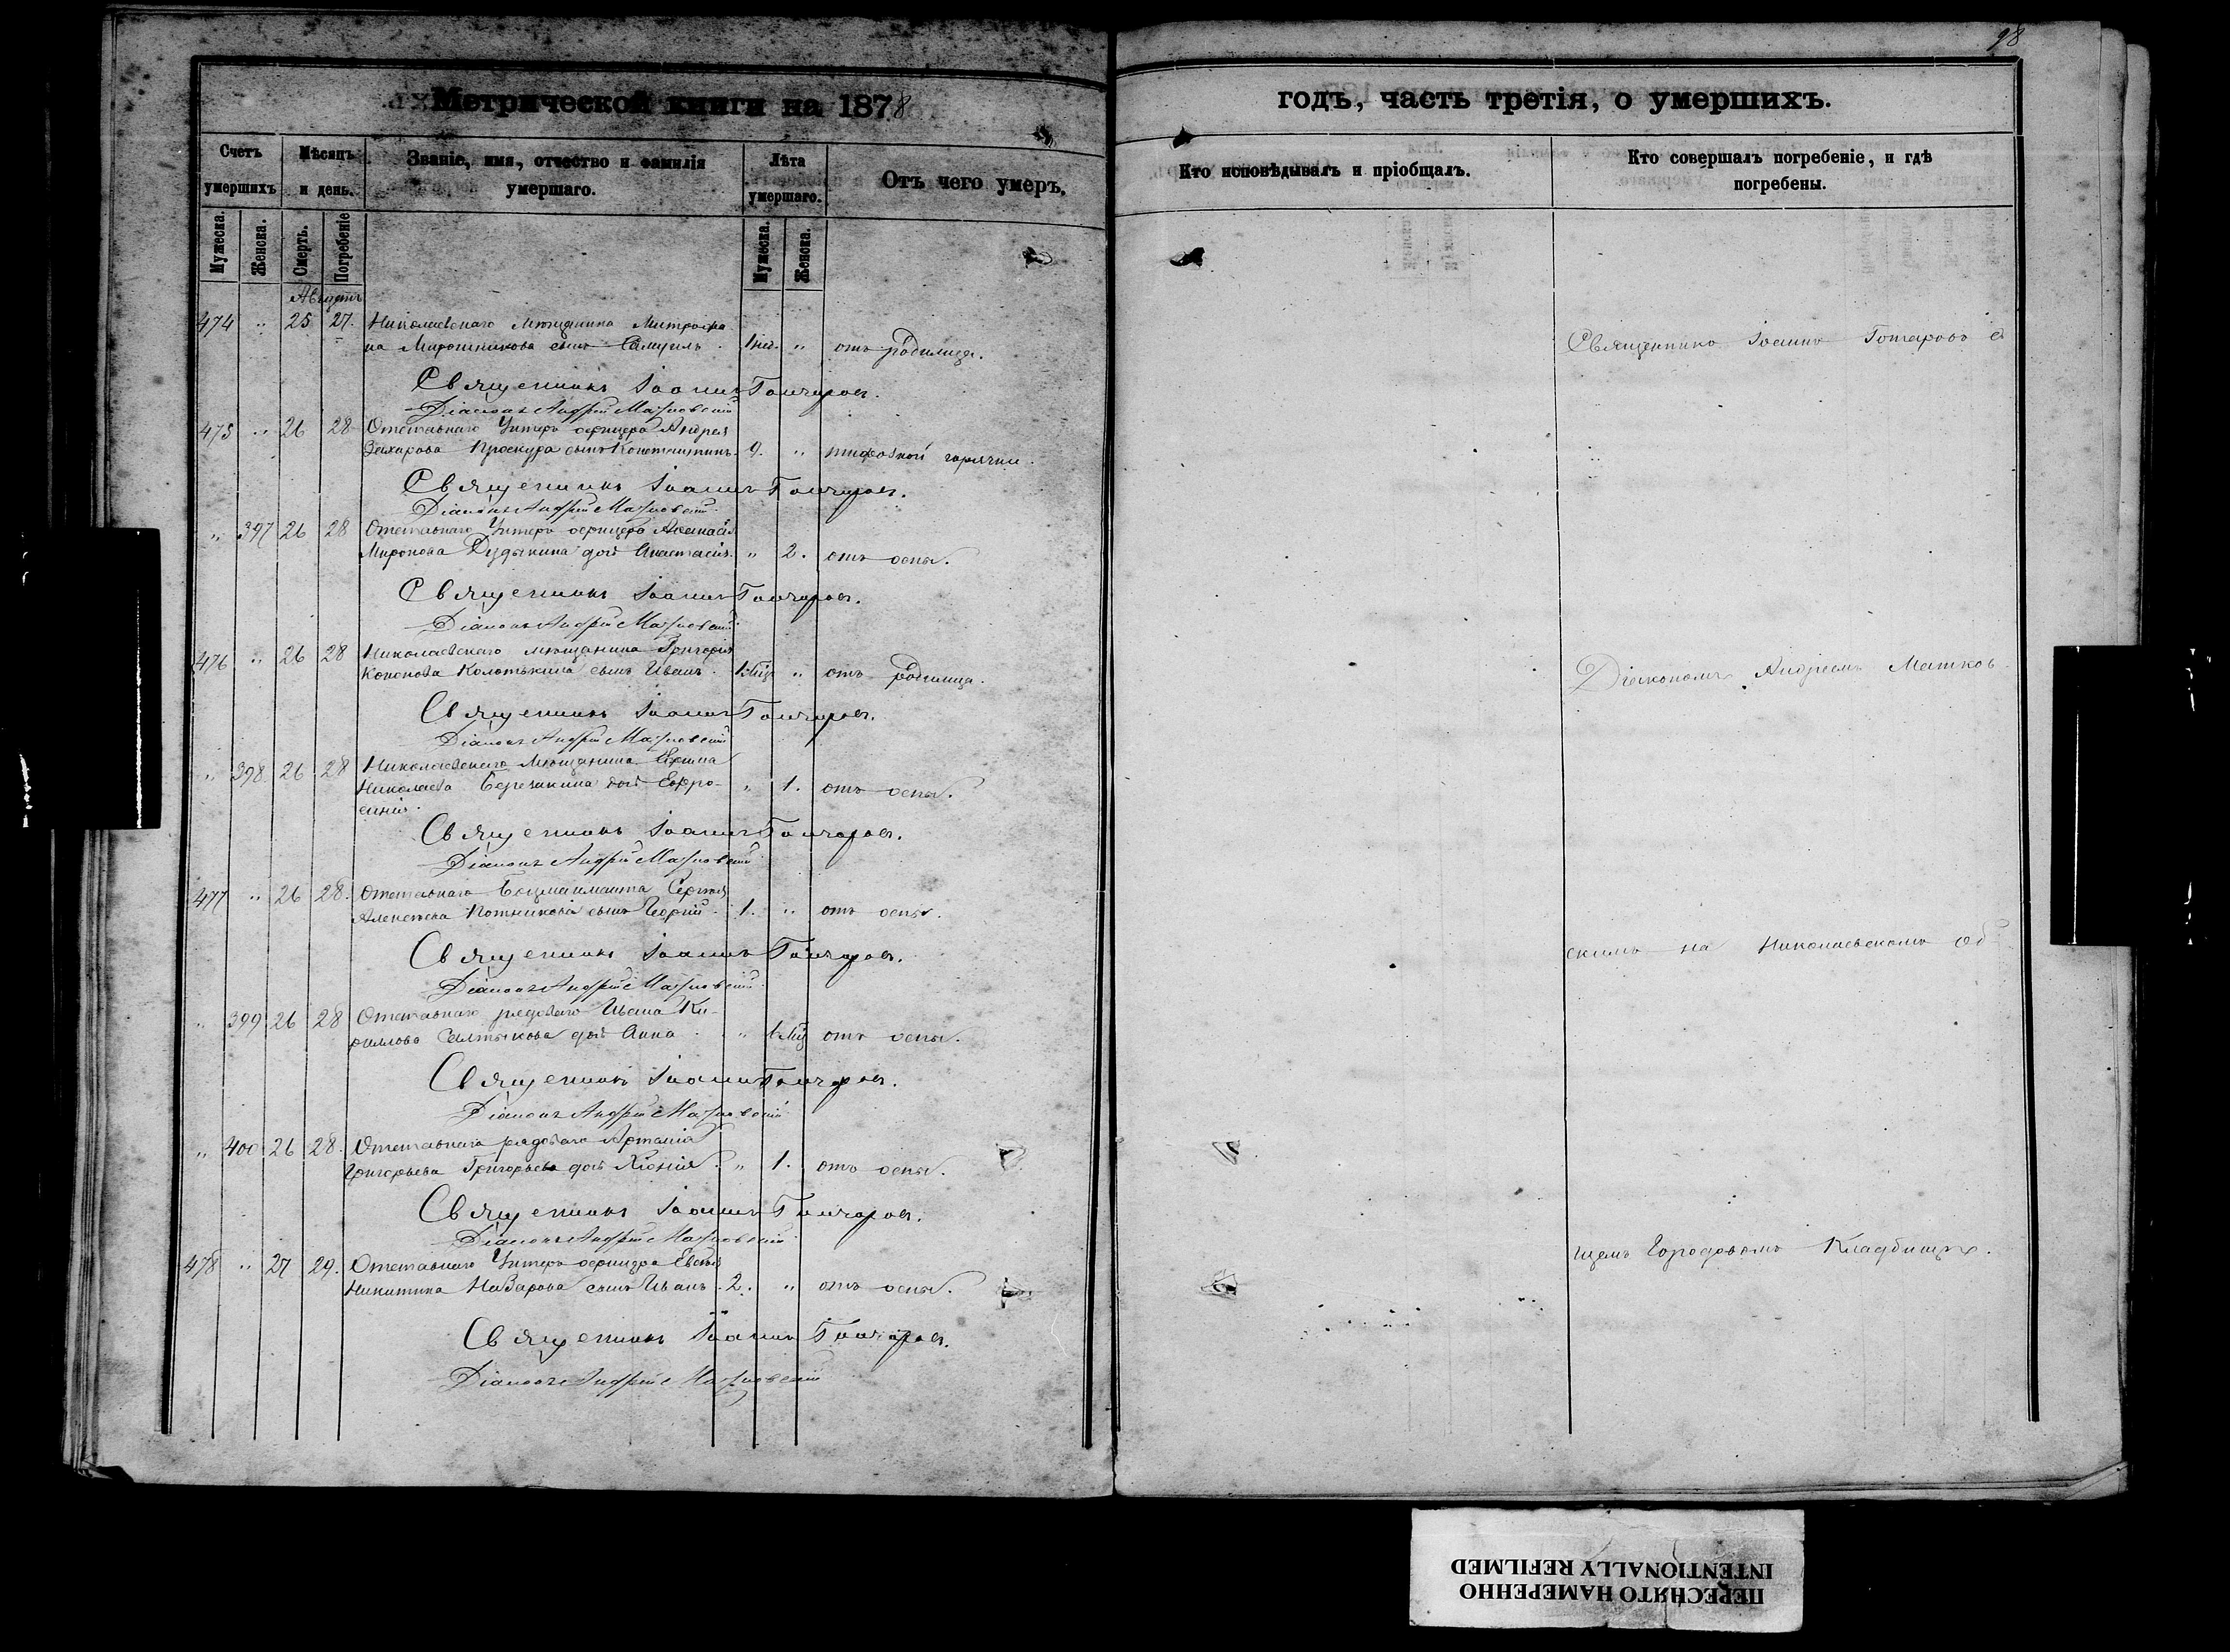 Метрической книги на 1878
Счетъ умершихъ
Мѣсяцъ и день.
Званіе, имя, отчество и фамилія умершаго.
Лѣта умершаго.
Отъ чего умеръ.
Мужеска. Женска. Смерть. Погребеніе Мужеска. Женска.
Августъ
474 " 25 27. Николаевскаго мѣщанина Митрофа
на Мирошникова сынъ Самуилъ. " отъ родимца.
Священникъ Іоаннъ Гончаровъ.
Діаконъ Андрей
475 " 26 28 Отставнаго Унтеръ офицера Андрея
Захарова Проскура сынъ Константинъ. 9. " тифозной горячки.
Священникъ Іоаннъ Гончаровъ.
Діаконъ Андрей
" 397 26 28 Отставнаго Унтеръ офицера Аѳанасія
Миронова дочь Анастасія. " 2. отъ оспы.
Священникъ Іоаннъ Гончаровъ.
Діаконъ Андрей
476 " 26 28 Николаевскаго мѣщанина Григорія
Кононова сынъ Иванъ. " отъ родимца.
Священникъ Іоаннъ Гончаровъ.
Діаконъ Андрей
" 398 26 28 Николаевскаго мѣщанина
Николаева дочь Евфро-
синія. " 1. отъ оспы.
Священникъ Іоаннъ Гончаровъ.
Діаконъ Андрей
477 " 26 28. Отставнаго Сергѣя
Алексѣева сынъ Георгій. 1. " отъ оспы.
Священникъ Іоаннъ Гончаровъ.
Діаконъ Андрей
" 399 26 28 Отставнаго рядоваго Ивана Ки-
рилова Салтыкова дочь Анна. " отъ оспы.
Священникъ Іоаннъ Гончаровъ.
Діаконъ Андрей
" 400 26 28. Отставнаго рядоваго
Григорьева Григорьева дочь Ксенія. " 1. отъ оспы.
Священникъ Іоаннъ Гончаровъ.
Діаконъ Андрей
478 " 27 29. Отставнаго Унтеръ офицера
Никитина Назарова сынъ Иванъ. 2. " отъ оспы.
Священникъ Іоаннъ Гончаровъ.
Діаконъ Андрей
98
годъ, часть третія, о умершихъ.
Кто исповѣдывалъ и пріобщалъ.
Кто совершалъ погребеніе, и гдѣ
погребены.
Священникъ Іоаннъ Гончаровъ съ
Діакономъ Андреемъ
скимъ на Николаевскомъ об-
щемъ Городовомъ Кладбищѣ.
ПЕРЕСНЯТО НАМЕРЕННО
INTENTIONALLY REFILMED